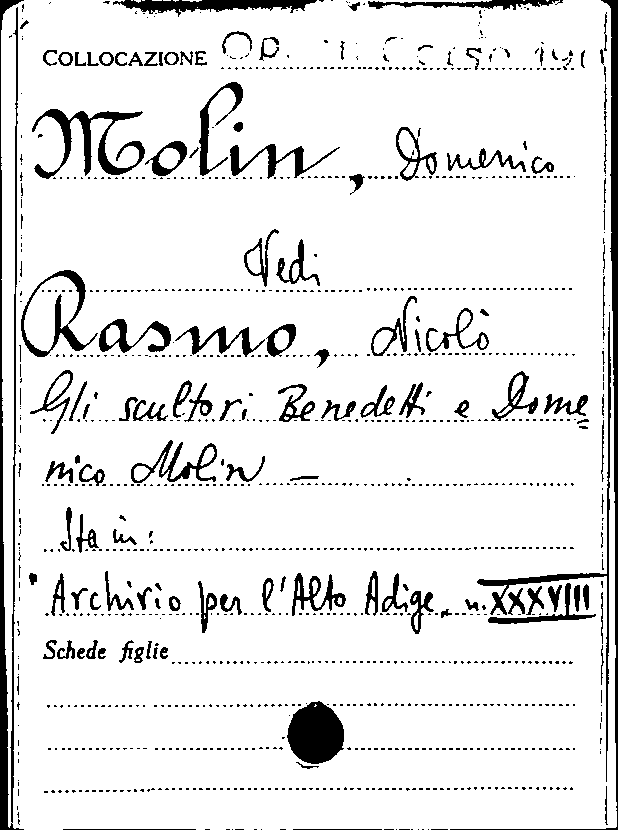 COLLOCAZIONE OP.
Molin, Domenico
Vedi
Rasmo, Nicolò
Gli scultori Benedetti e Dome
nico Molin —
Sta in:
"Archivio per l'Alto Adige" n. XXXVIII
Schede figlie